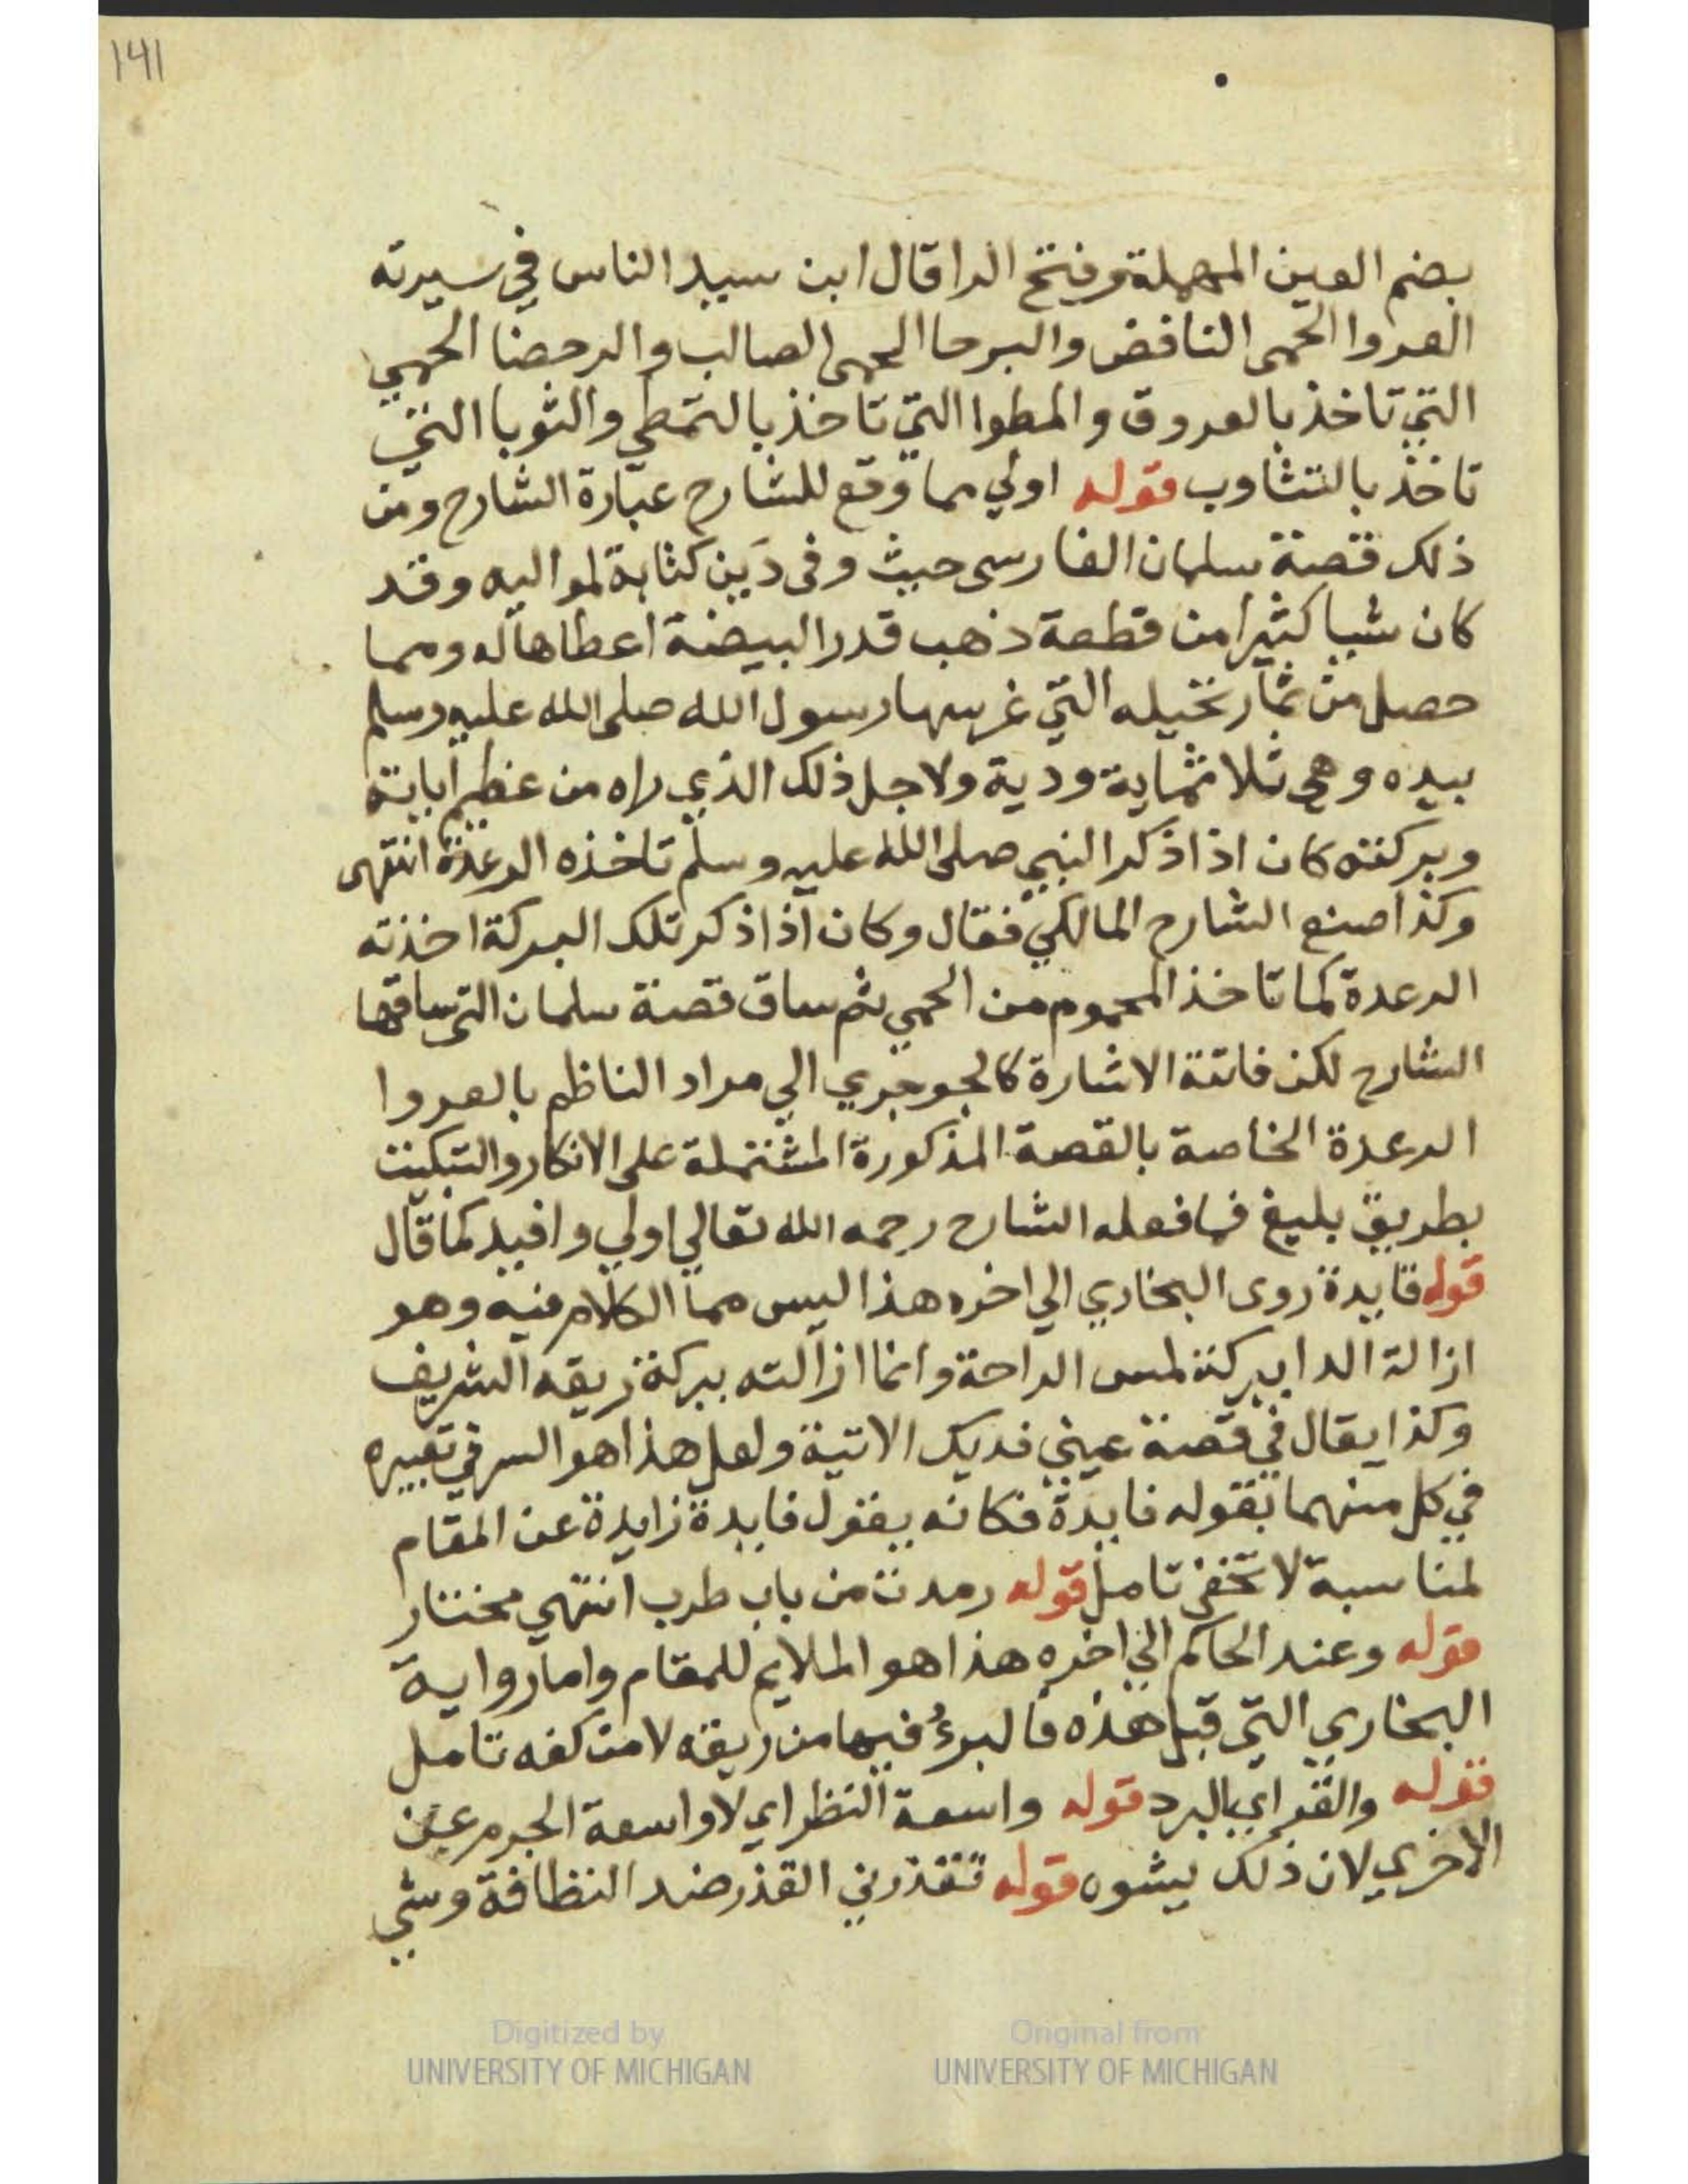 141
بضم العين المهملة وفتح الرا قال ابن سيد الناس في سيرته
العروا الحمى النافض والبرحا الحمى الصالب والرحضا الحمي
التي تاخذ بالعروق والمطوا التي تاخذ بالتمطي والثوبا التي
تاخذ بالتثاوب قوله اولي مما وقع للشارح عبارة الشارح ومن
ذلك قصة سلمان الفارسى حيث وفى دَين كتابة لمواليه وقد
كان شيا كثيرا من قطعة ذهب قدر البيضة اعطاها له ومما
حصل من ثمار نخيله التي غرسها رسول الله صلى الله عليه وسلم
بيده وهى ثلاثماية ودية ولاجل ذلك الذي راه من عظيم اياته
وبركته كان اذا ذكر النبي صلى الله عليه وسلم تاخذه الرعدة انتهى
وكذا صنع الشارح المالكي فقال وكان اذا ذكر تلك البركة اخذته
الرعدة كما تاخذ المحموم من الحمي ثم ساق قصة سلمان التي ساقها
الشارح لكن فاتته الاشارة كالجوجري الي مراد الناظم بالعروا
الرعدة الخاصة بالقصة المذكورة المشتملة على الانكار والتبكيت
بطريق بليغ فما فعله الشارح رحمه الله تعالي اولي وافيد كما قال
قوله فايدة روى البخاري الي اخره هذا ليس مما الكلام فيه وهو
ازالة الدا ببركة لمس الراحة وانما ازالته ببركة ريقه الشريف
وكذا يقال في قصة عيني فديك الاتية ولعل هذا هو السر في تعبيره
في كل منهما بقوله فايدة فكانه يقول فايدة زايدة عن المقام
لمناسبة لا تخفى تامل قوله رمدت من باب طرب انتهي مختار
قوله وعند الحاكم الي اخره هذا هو الملايم للمقام واما رواية
البخاري التي قبل هذه فالبرءُ فيها من ريقه لا من كفه تامل
قوله والقر اي البرد قوله واسعة النظر اي لا واسعة الجرم عن
الاخري لان ذلك يشوه قوله تقذرني القذر ضد النظافة وشي
Digitized by
UNIVERSITY OF MICHIGAN
Original from
UNIVERSITY OF MICHIGAN